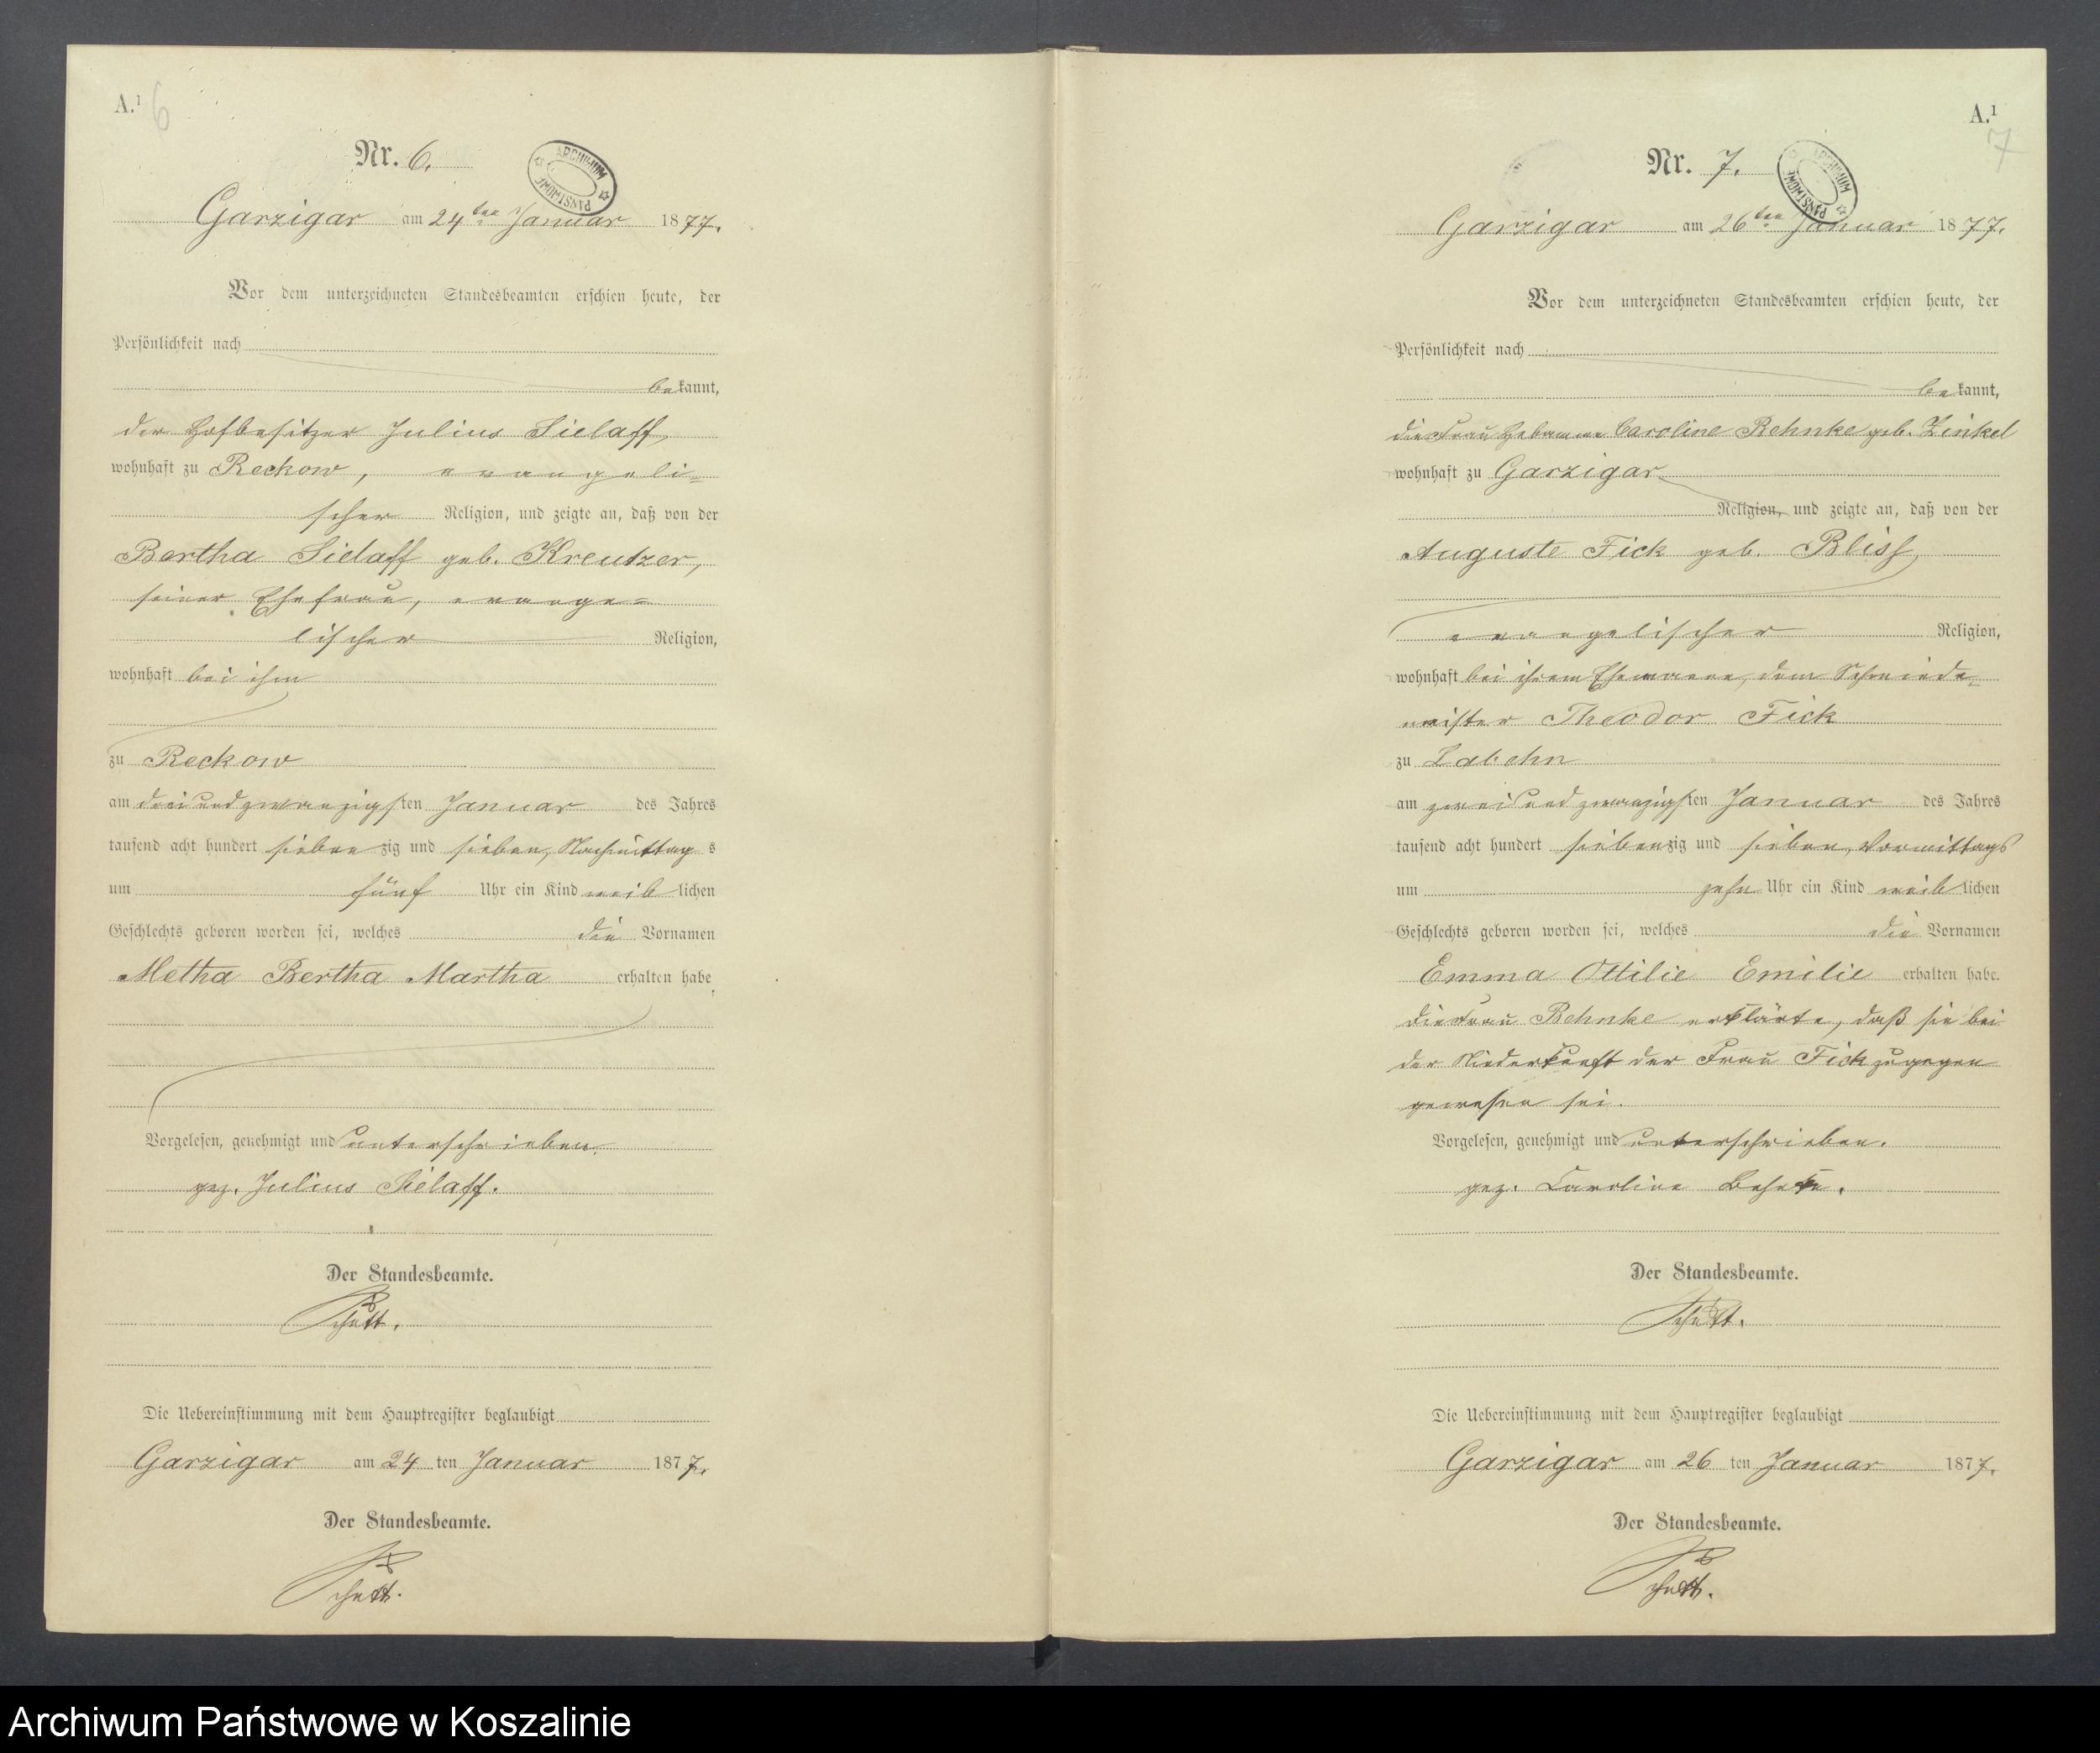 A.¹ 6
Nr. 6.
ARCHIWUM PAŃSTWOWE
Garzigar am 24ten Januar 1877.
Vor dem unterzeichneten Standesbeamten erschien heute, der
Persönlichkeit nach
bekannt,
der Hofbesitzer Julius Sielaff,
wohnhaft zu Reckow, evangeli-
scher Religion, und zeigte an, daß von der
Bertha Sielaff geb. Kreutzer,
seiner Ehefrau, evange-
lischer Religion,
wohnhaft bei ihm
zu Reckow
am drei und zwanzigsten Januar des Jahres
tausend acht hundert siebenzig und sieben, Nachmittags
um fünf Uhr ein Kind weiblichen
Geschlechts geboren worden sei, welches die Vornamen
Metha Bertha Martha erhalten habe.
Vorgelesen, genehmigt und unterschrieben.
gez. Julius Sielaff.
Der Standesbeamte.
Die Uebereinstimmung mit dem Hauptregister beglaubigt
Garzigar am 24 ten Januar 1877.
Der Standesbeamte.
A.¹
7
Nr. 7.
ARCHIWUM PAŃSTWOWE
Garzigar am 26ten Januar 1877.
Vor dem unterzeichneten Standesbeamten erschien heute, der
Persönlichkeit nach
bekannt,
die Frau Hebamme Caroline Behnke geb. Zinkel
wohnhaft zu Garzigar
Religion, und zeigte an, daß von der
Auguste Fick geb. Bliss,
evangelischer Religion,
wohnhaft bei ihrem Ehemanne, dem Schmiede-
meister Theodor Fick
zu Labehn
am zwei und zwanzigsten Januar des Jahres
tausend acht hundert siebenzig und sieben, Vormittags
um zehn Uhr ein Kind weiblichen
Geschlechts geboren worden sei, welches die Vornamen
Emma Ottilie Emilie erhalten habe.
Die Frau Behnke erklärte, daß sie bei
der Niederkunft der Frau Fick zugegen
gewesen sei.
Vorgelesen, genehmigt und unterschrieben.
gez. Caroline Behnke.
Der Standesbeamte.
Die Uebereinstimmung mit dem Hauptregister beglaubigt
Garzigar am 26 ten Januar 1877.
Der Standesbeamte.
Archiwum Państwowe w Koszalinie